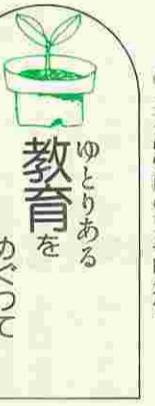 ゆとりある
教育を
めぐって